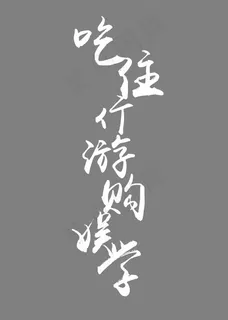 吃住行游购娱学